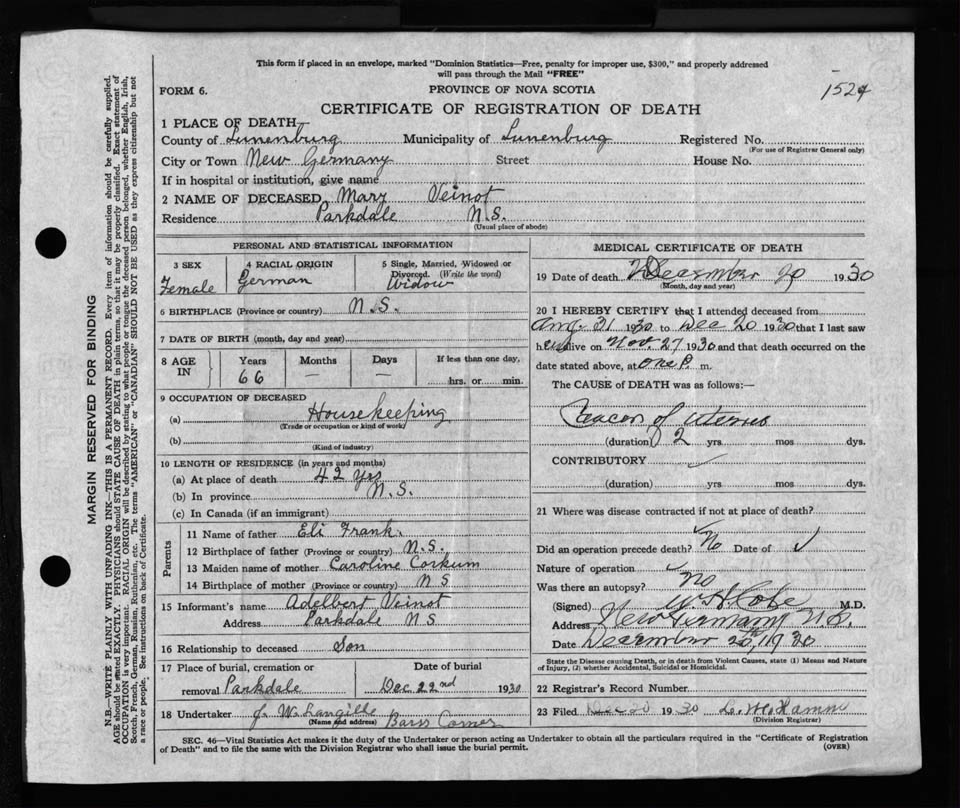 This form if placed in an envelope, marked "Dominion Statistics—Free, penalty for improper use, $300," and properly addressed
will pass through the Mail "FREE"
FORM 6.
PROVINCE OF NOVA SCOTIA
1524
CERTIFICATE OF REGISTRATION OF DEATH
1 PLACE OF DEATH
County of Lunenburg Municipality of Lunenburg Registered No.
(For use of Registrar General only)
City or Town New Germany Street House No.
If in hospital or institution, give name
2 NAME OF DECEASED Mary Veinot
Residence Parkdale N.S.
(Usual place of abode)
PERSONAL AND STATISTICAL INFORMATION
3 SEX
Female
4 RACIAL ORIGIN
German
5 Single, Married, Widowed or
Divorced. (Write the word)
Widow
6 BIRTHPLACE (Province or country) N.S.
7 DATE OF BIRTH (month, day and year)
8 AGE
IN
Years
66
Months
—
Days
—
If less than one day,
hrs. or min.
9 OCCUPATION OF DECEASED
(a) Housekeeping
(Trade or occupation or kind of work)
(b)
(Kind of industry)
10 LENGTH OF RESIDENCE (in years and months)
(a) At place of death 42 yrs
(b) In province N.S.
(c) In Canada (if an immigrant)
Parents
11 Name of father Eli Frank.
12 Birthplace of father (Province or country) N.S.
13 Maiden name of mother Caroline Corkum
14 Birthplace of mother (Province or country) N S
15 Informant's name Adelbert Veinot
Address Parkdale N S
16 Relationship to deceased Son
17 Place of burial, cremation or
removal Parkdale
Date of burial
Dec 22nd 1930
18 Undertaker W Langille Barss Corner
(Name and address)
MEDICAL CERTIFICATE OF DEATH
19 Date of death December 20 1930
(Month, day and year)
20 I HEREBY CERTIFY that I attended deceased from
Aug 31 1930 to Dec 20 1930 that I last saw
her alive on Nov. 27 1930 and that death occurred on the
date stated above, at one P. m.
The CAUSE of DEATH was as follows:—
of uterus
(duration) 2 yrs mos dys.
CONTRIBUTORY
(duration) yrs mos dys.
21 Where was disease contracted if not at place of death?
Did an operation precede death? No Date of
Nature of operation
Was there an autopsy? No
(Signed) M.D.
Address New Germany N.S.
Date December 20th, 1930
State the Disease causing Death, or in death from Violent Causes, state (1) Means and Nature
of Injury, (2) whether Accidental, Suicidal or Homicidal.
22 Registrar's Record Number
23 Filed Dec 20 1930
(Division Registrar)
SEC. 46—Vital Statistics Act makes it the duty of the Undertaker or person acting as Undertaker to obtain all the particulars required in the "Certificate of Registration
of Death" and to file the same with the Division Registrar who shall issue the burial permit.
(OVER)
MARGIN RESERVED FOR BINDING
N.B.—WRITE PLAINLY WITH UNFADING INK—THIS IS A PERMANENT RECORD. Every item of information should be carefully supplied.
AGE should be stated EXACTLY. PHYSICIANS should STATE CAUSE OF DEATH in plain terms, so that it may be properly classified. Exact statement of
OCCUPATION is very important. RACIAL ORIGIN will be described by stating to what people or tongue the deceased person belonged, whether English, Irish,
Scotch, French, German, Russian, Ruthenian, etc. The terms "AMERICAN" or "CANADIAN" SHOULD NOT BE USED as they express citizenship but not
a race or people. See instructions on back of Certificate.